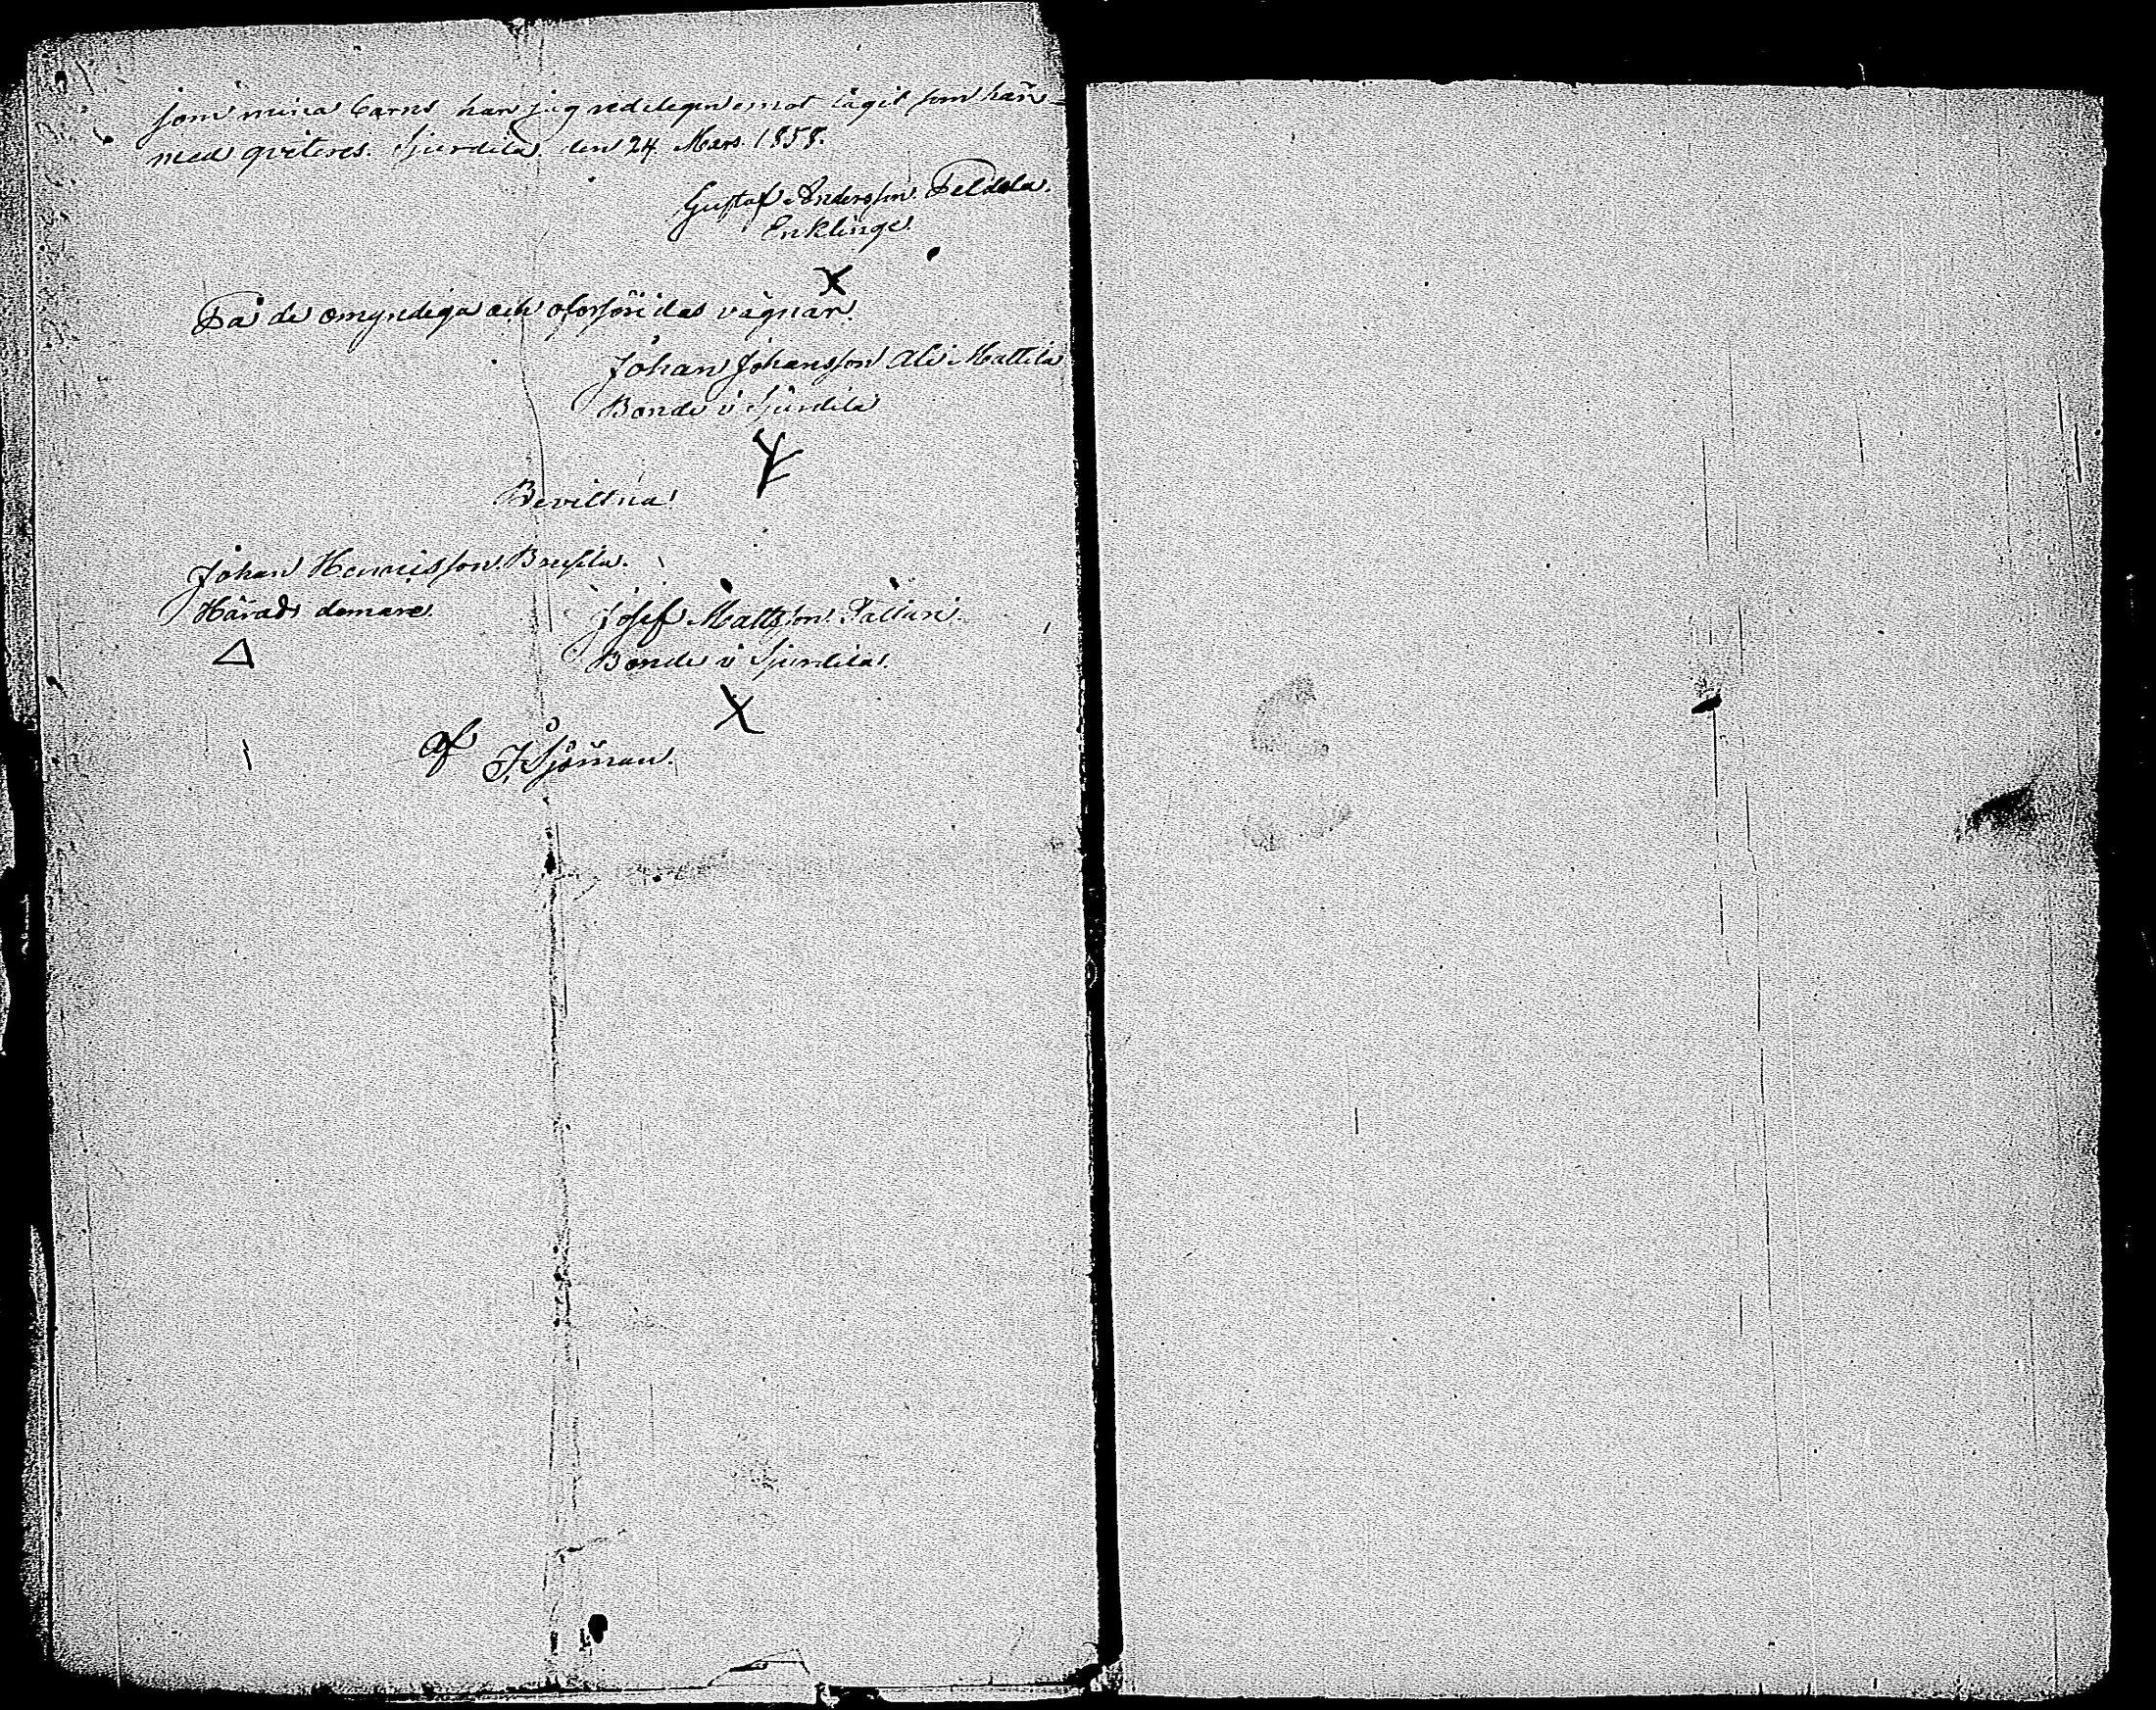 som mina barns har jag redeligen emot tagit som här-
med qviteres. Sjundila den 24 Mars. 1858.
Gustaf Andersson Peldola.
Enklinge.
X
På de omyndiga och oförsörjdas vägnar.
Johan Johansson Ali Mattila
Bonde i Sjundila
Bevittna!
Johan Hennisson Brusila.
Härads domare.
Josef Mattsson Pallari.
Bonde i Sjundila.
X
af J. Sjöman.